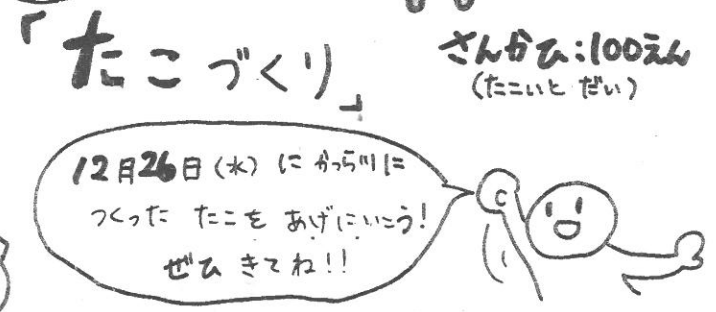 「たこづくり」
さんかひ:100えん
(たこいと だい)
12月26日(水)に かつら川に
つくった たこを あげにいこう!
ぜひ きてね!!